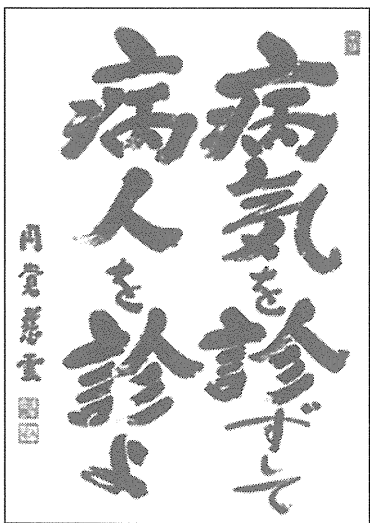 病気を診ずして
病人を診よ
円覚慈雲